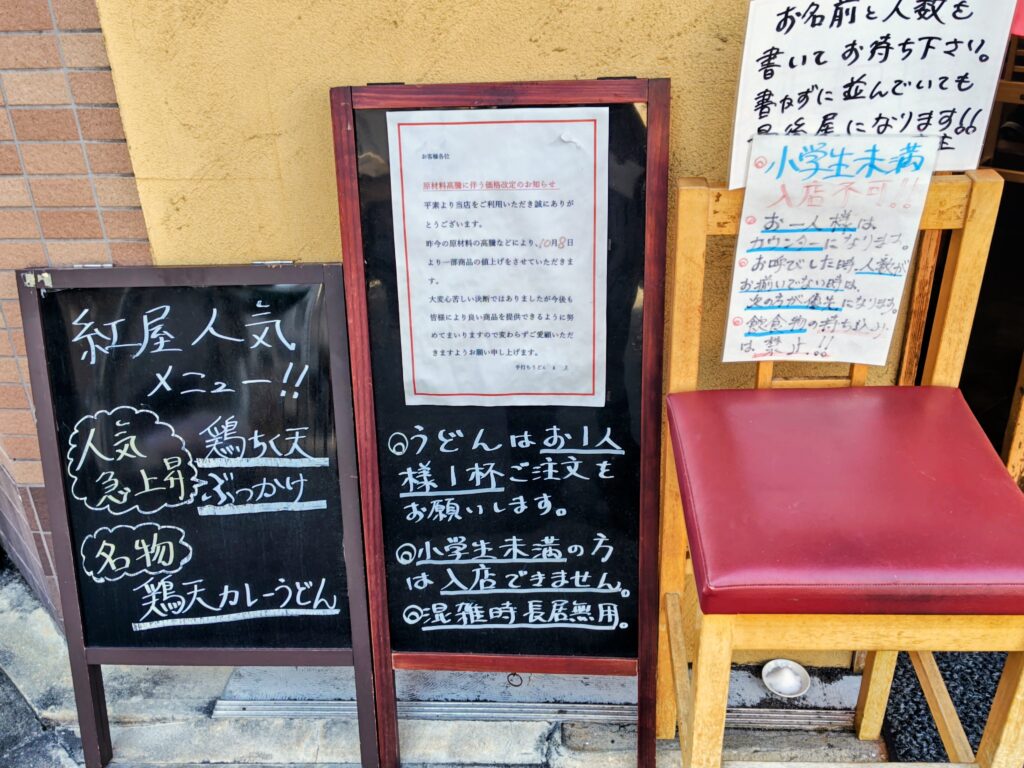 紅屋人気
メニュー!!
人気
急上昇
鶏ちく天
ぶっかけ
名物
鶏天カレーうどん
お客様各位
原材料高騰に伴う価格改定のお知らせ
平素より当店をご利用いただき誠にありが
とうございます。
昨今の原材料の高騰などにより、10月8日
より一部商品の値上げをさせていただきま
す。
大変心苦しい決断ではありましたが今後も
皆様により良い商品を提供できるように努
めてまいりますので変わらずご愛顧いただ
きますようお願い申し上げます。
手打ちうどん
うどんはお1人
様1杯ご注文を
お願いします。
小学生未満の方
は入店できません。
混雑時長居無用。
お名前と人数を
書いてお待ち下さい。
書かずに並んでいても
最後尾になります!!
小学生未満
入店不可!!
お一人様は
カウンターになります。
お呼びした時、人数が
お揃いでない時は、
次の方が優先になります。
飲食物の持ち込み
は禁止!!